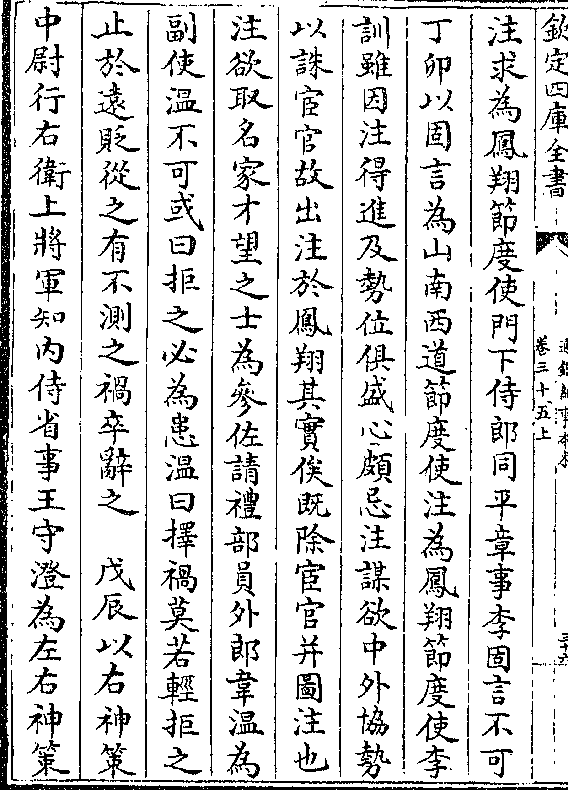 欽定四庫全書
卷三十五上
注求為鳳翔節度使門下侍郎同平章事李固言不可
丁卯以固言為山南西道節度使注為鳳翔節度使李
訓雖因注得進及勢位俱盛心頗忌注謀欲中外協勢
以誅宦官故出注於鳳翔其實俟既除宦官并圖注也
注欲取名家才望之士為參佐請禮部員外郎韋温為
副使温不可或曰拒之必為患温曰擇禍莫若輕拒之
止於遠貶從之有不測之禍卒辭之　戊辰以右神策
中尉行右衛上將軍知内侍省事王守澄為左右神策